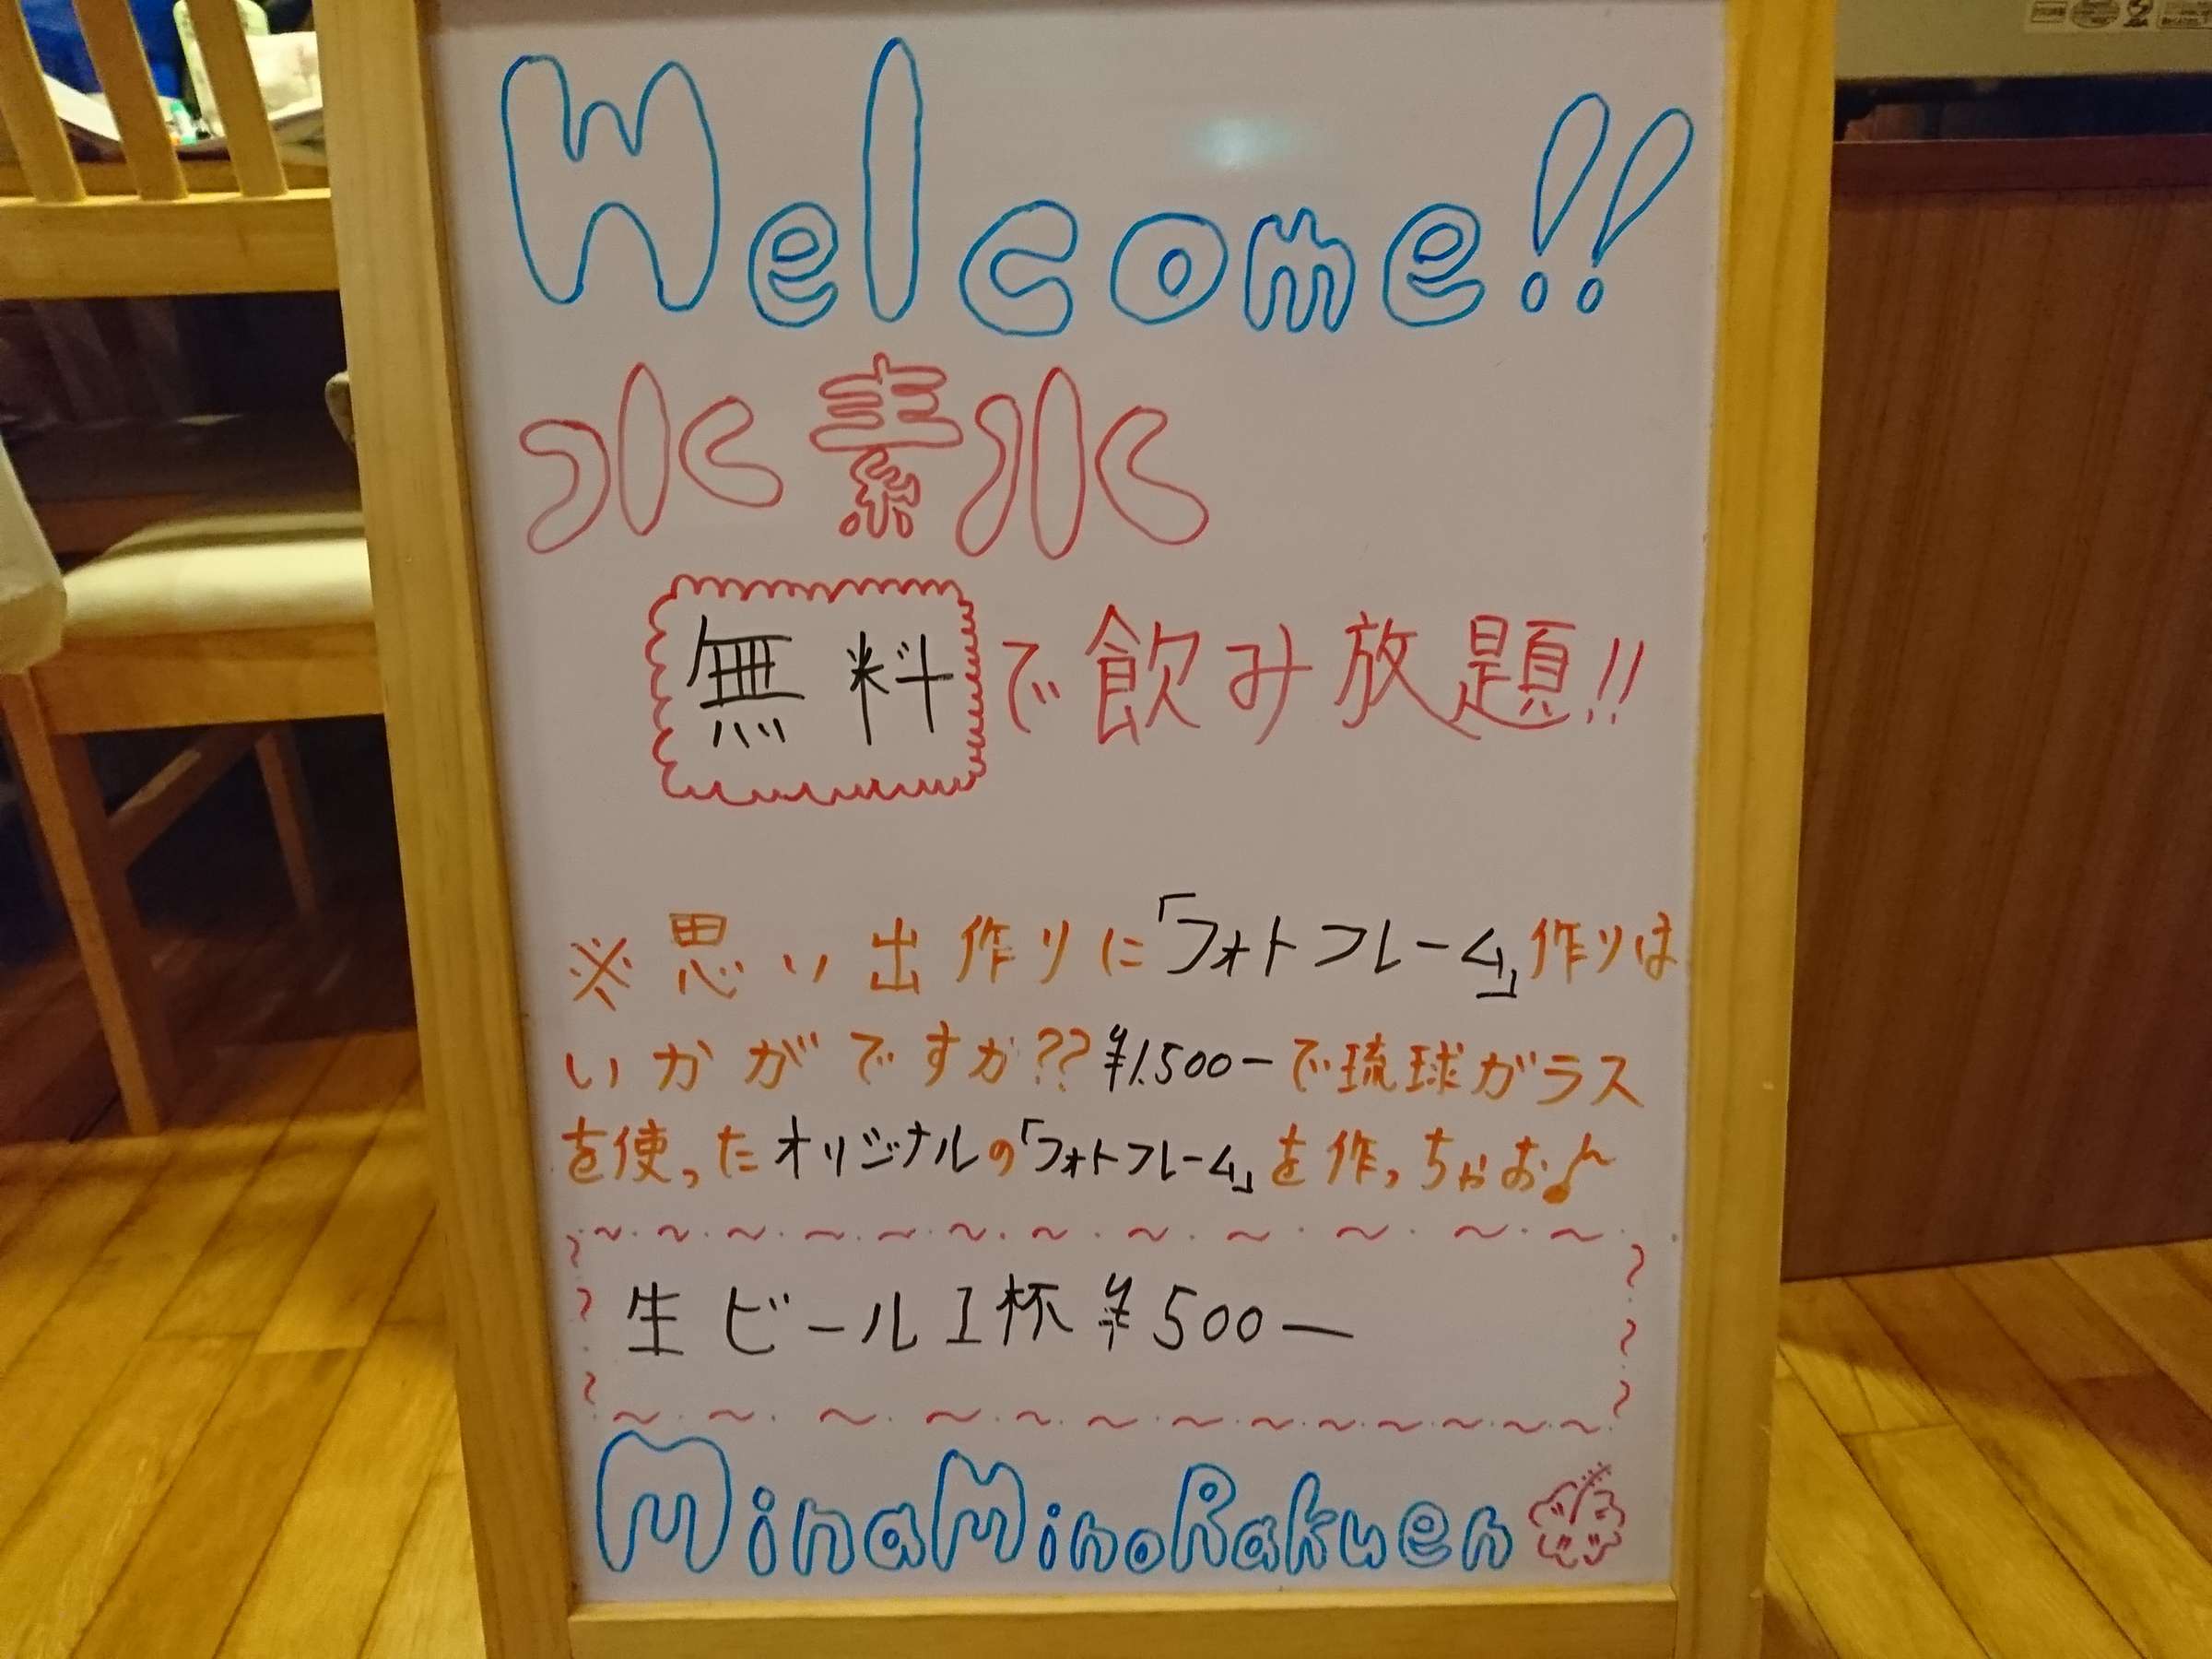 Welcome!!
水素水
無料で飲み放題!!
※思い出作りに「フォトフレーム」作りは
いかがですか??¥1.500ーで琉球ガラス
を使ったオリジナルの「フォトフレーム」を作っちゃお♪
生ビール1杯¥500ー
MinaMinoRakuen